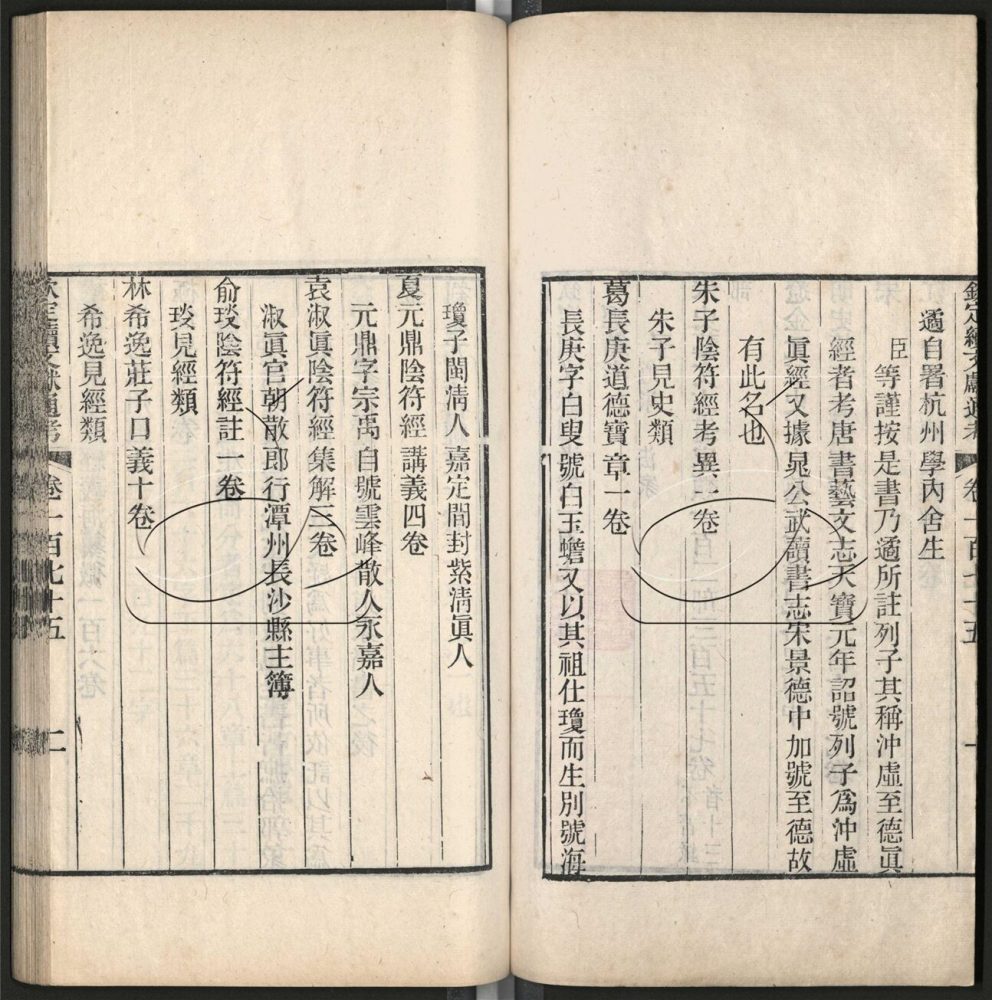 欽定續文獻通考 卷一百七十五
遹自署杭州學內舍生
臣等謹按是書乃遹所註列子其稱沖虛至德眞
經者考唐書藝文志天寶元年詔號列子爲沖虛
眞經又據晁公武讀書志宋景德中加號至德故
有此名也
朱子陰符經考異一卷
朱子見史類
葛長庚道德寶章一卷
長庚字白叟號白玉蟾又以其祖仕瓊而生別號海
瓊子閩清人嘉定間封紫清眞人
夏元鼎陰符經講義四卷
元鼎字宗禹自號雲峰散人永嘉人
袁淑眞陰符經集解三卷
淑眞官朝散郎行潭州長沙縣主簿
俞琰陰符經註一卷
琰見經類
林希逸莊子口義十卷
希逸見經類
欽定續文獻通考 卷一百七十五 二